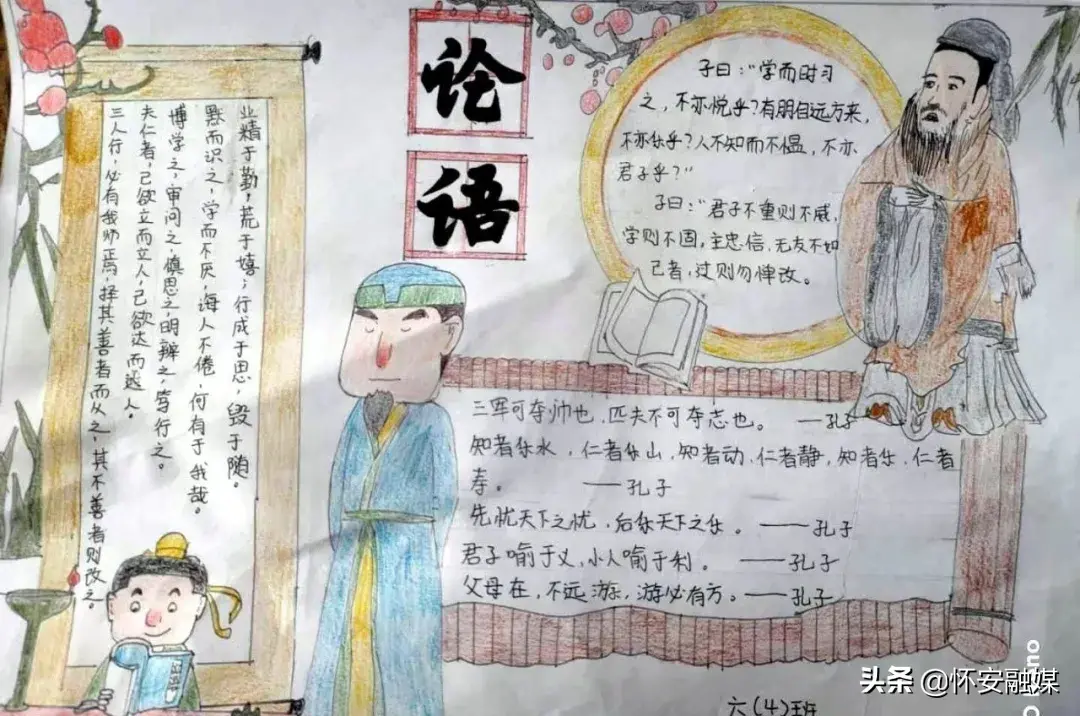 论
语
业精于勤,荒于嬉;行成于思,毁于随。
默而识之,学而不厌,诲人不倦,何有于我哉。
博学之,审问之,慎思之,明辨之,笃行之。
夫仁者,己欲立而立人,己欲达而达人。
三人行,必有我师焉,择其善者而从之,其不善者则改之。
子曰:“学而时习
之,不亦悦乎?有朋自远方来,
不亦乐乎?人不知而不愠,不亦
君子乎?”
子曰:“君子不重则不威,
学则不固,主忠信,无友不如
己者,过则勿惮改。
三军可夺帅也,匹夫不可夺志也。 ——孔子
知者乐水,仁者乐山,知者动,仁者静,知者乐,仁者
寿。 ——孔子
先忧天下之忧,后乐天下之乐。 ——孔子
君子喻于义,小人喻于利。 ——孔子
父母在,不远游,游必有方。——孔子
六(4)班
头条 @怀安融媒